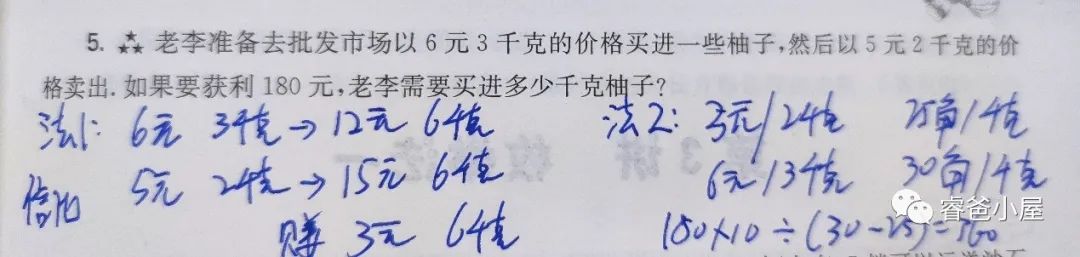 5. ☆☆☆ 老李准备去批发市场以 6 元 3 千克的价格买进一些柚子,然后以 5 元 2 千克的价
格卖出. 如果要获利 180 元,老李需要买进多少千克柚子?
法1: 6元 3千克 → 12元 6千克
5元 2千克 → 15元 6千克
赚 3元 6千克
法2: 5元/2千克 25角/千克
6元/3千克 30角/千克
180×10÷(30-25)=360
睿爸小屋